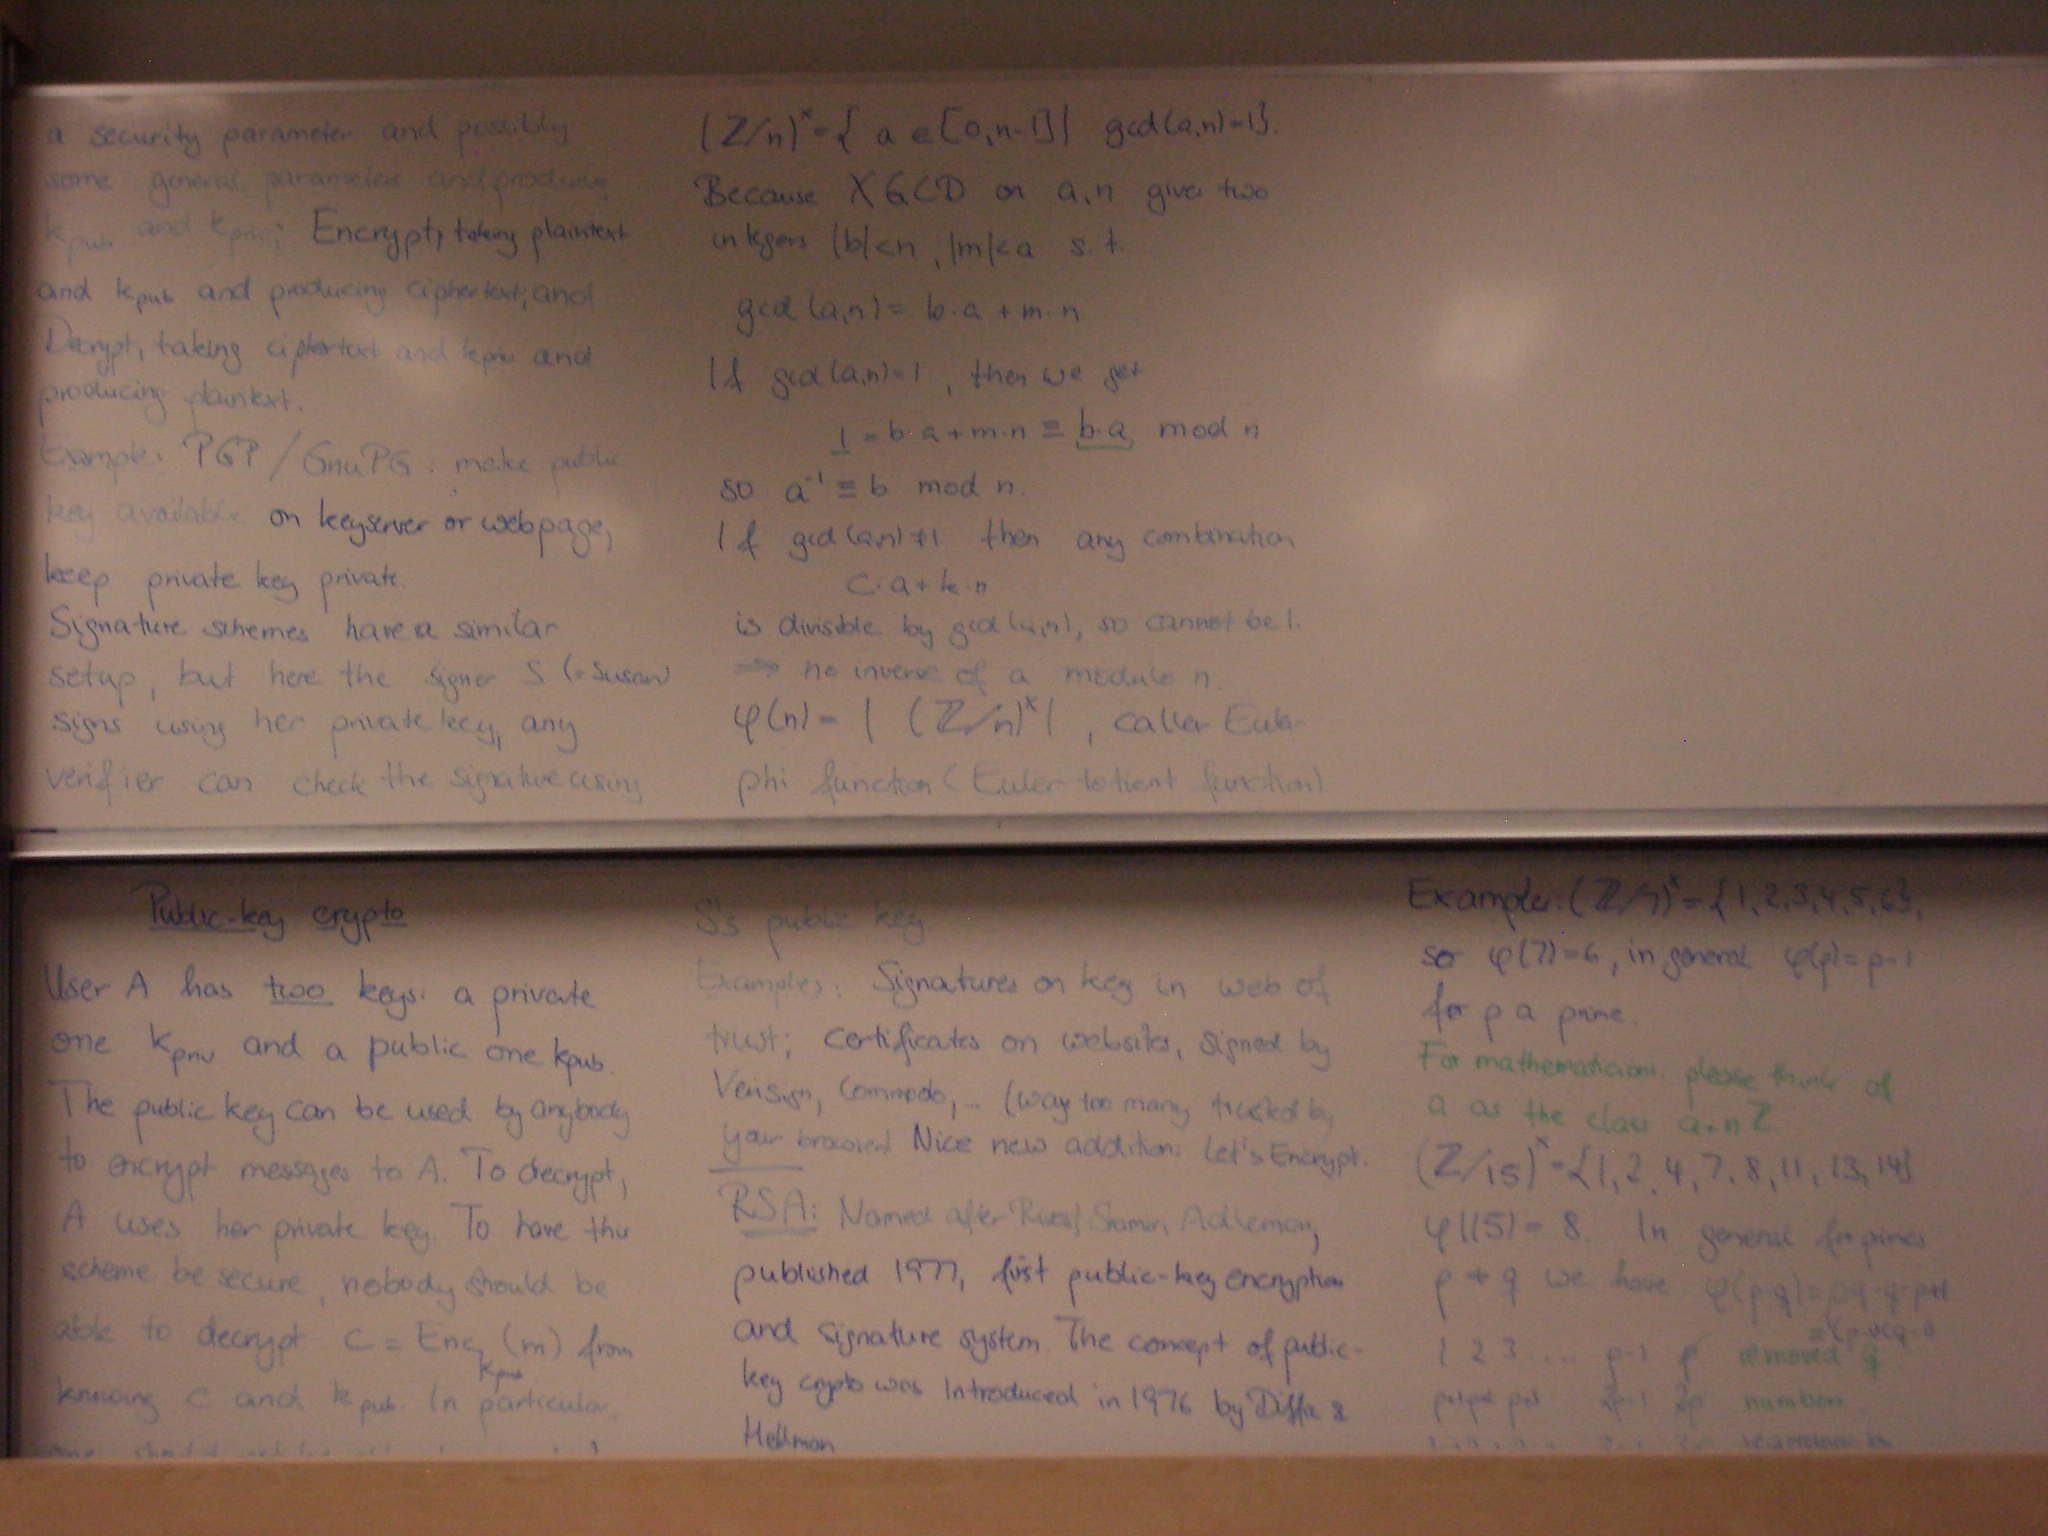 a security parameter and possibly
some general parameters and producing
kpub and kpriv; Encrypt, taking plaintext
and kpub and producing ciphertext; and
Decrypt, taking ciphertext and kpriv and
producing plaintext.
Example: PGP / GnuPG: make public
key available on keyserver or webpage,
keep private key private.
Signature schemes have a similar
setup, but here the signer S (=Susan)
signs using her private key, any
verifier can check the signature using
(ℤ/n)ˣ={ a ∈ [0,n-1] | gcd(a,n)=1}.
Because XGCD on a,n gives two
integers |b|<n, |m|<a s.t.
gcd(a,n) = b·a + m·n
If gcd(a,n)=1, then we get
1 = b·a + m·n ≡ b·a mod n
so a⁻¹ ≡ b mod n.
If gcd(a,n)≠1 then any combination
c·a + k·n
is divisible by gcd(a,n), so cannot be 1.
⇒ no inverse of a modulo n.
φ(n) = | (ℤ/n)ˣ |, called Euler
phi function (Euler totient function)
Public-key crypto
User A has two keys: a private
one kpriv and a public one kpub.
The public key can be used by anybody
to encrypt messages to A. To decrypt,
A uses her private key. To have this
scheme be secure, nobody should be
able to decrypt c = Enc kpub (m) from
knowing c and kpub. In particular
one should
S's public key
Examples: Signatures on key in web of
trust; certificates on websites, signed by
Verisign, Commodo, ... (way too many trusted by
your browser) Nice new addition: Let's Encrypt.
RSA: Named after Rivest, Shamir, Adleman,
published 1977, first public-key encryption
and signature system. The concept of public-
key crypto was introduced in 1976 by Diffie &
Hellman
Example: (ℤ/7)ˣ={1,2,3,4,5,6},
so φ(7)=6, in general φ(p)=p-1
for p a prime.
For mathematicians: please think of
a as the class a+nℤ
(ℤ/15)ˣ={1, 2, 4, 7, 8, 11, 13, 14}
φ(15) = 8. In general for primes
p ≠ q we have φ(p·q)=pq-q-p+1
=(p-1)(q-1)
1 2 3 .... p-1 p removed q
p+1 p+2 p+3 2p-1 2p numbers